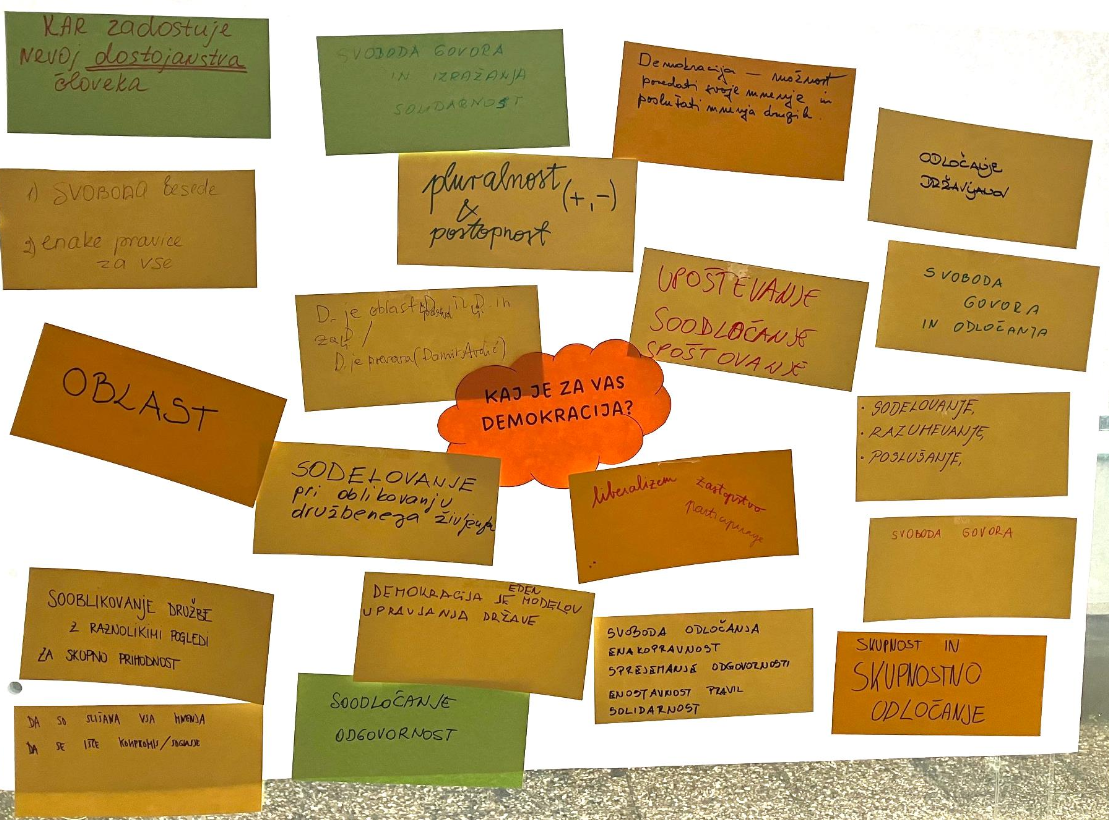 KAR zadostuje
nevoj dostojanstva
človeka
SVOBODA GOVORA
IN IZRAŽANJA
SOLIDARNOST
Demokracija – možnost
povedati svoje mnenje in
poslušati mnenja drugih.
ODLOČANJE
DRŽAVLJANOV
1) SVOBODA besede
2) enake pravice
za vse
pluralnost
& (+,-)
postopnost
UPOŠTEVANJE
SOODLOČANJE
SPOŠTOVANJE
SVOBODA
GOVORA
IN ODLOČANJA
D. je oblast
za
D. je prevara
KAJ JE ZA VAS
DEMOKRACIJA?
OBLAST
• SODELOVANJE,
• RAZUMEVANJE,
• POSLUŠANJE,
SODELOVANJE
pri oblikovanju
družbenega življenja
liberalizem zastopstvo
SVOBODA GOVORA
SOOBLIKOVANJE DRUŽBE
Z RAZNOLIKIMI POGLEDI
ZA SKUPNO PRIHODNOST
EDEN
DEMOKRACIJA JE MODELOV
UPRAVLJANJA DRŽAVE
SVOBODA ODLOČANJA
ENAKOPRAVNOST
SPREJEMANJE ODGOVORNOSTI
ENOSTAVNOST PRAVIL
SOLIDARNOST
SKUPNOST IN
SKUPNOSTNO
ODLOČANJE
DA SO SLIŠANA VSA MNENJA
DA SE IŠČE KOMPROMIS/SOGLASJE
SOODLOČANJE
ODGOVORNOST